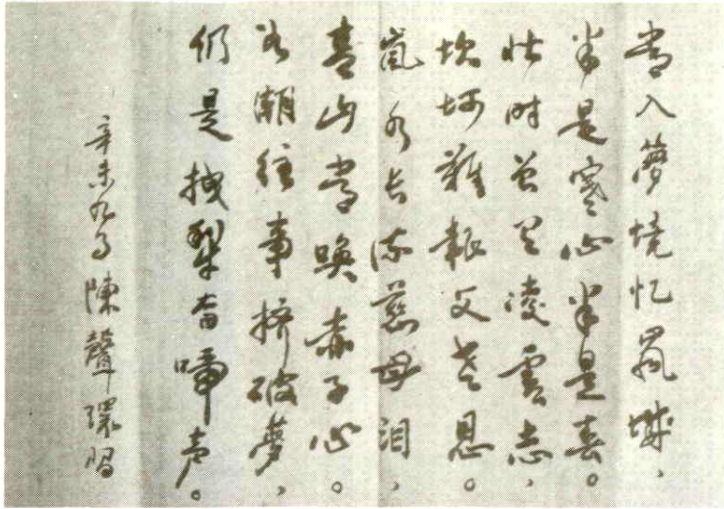 常入夢境忆嵐城，
半是寒心半是春。
壮时曾凌雲志，
坎坷難報父老恩。
嵐水长流慈母泪，
青山常唤赤子心。
潮往事擠破夢，
仍是拽犁啼声。
辛未九月陳聲環